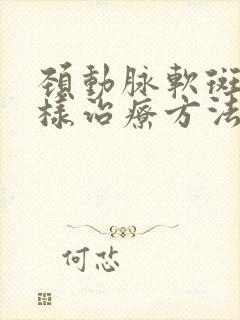 頸動脉軟斑
樣治療方法
何忿